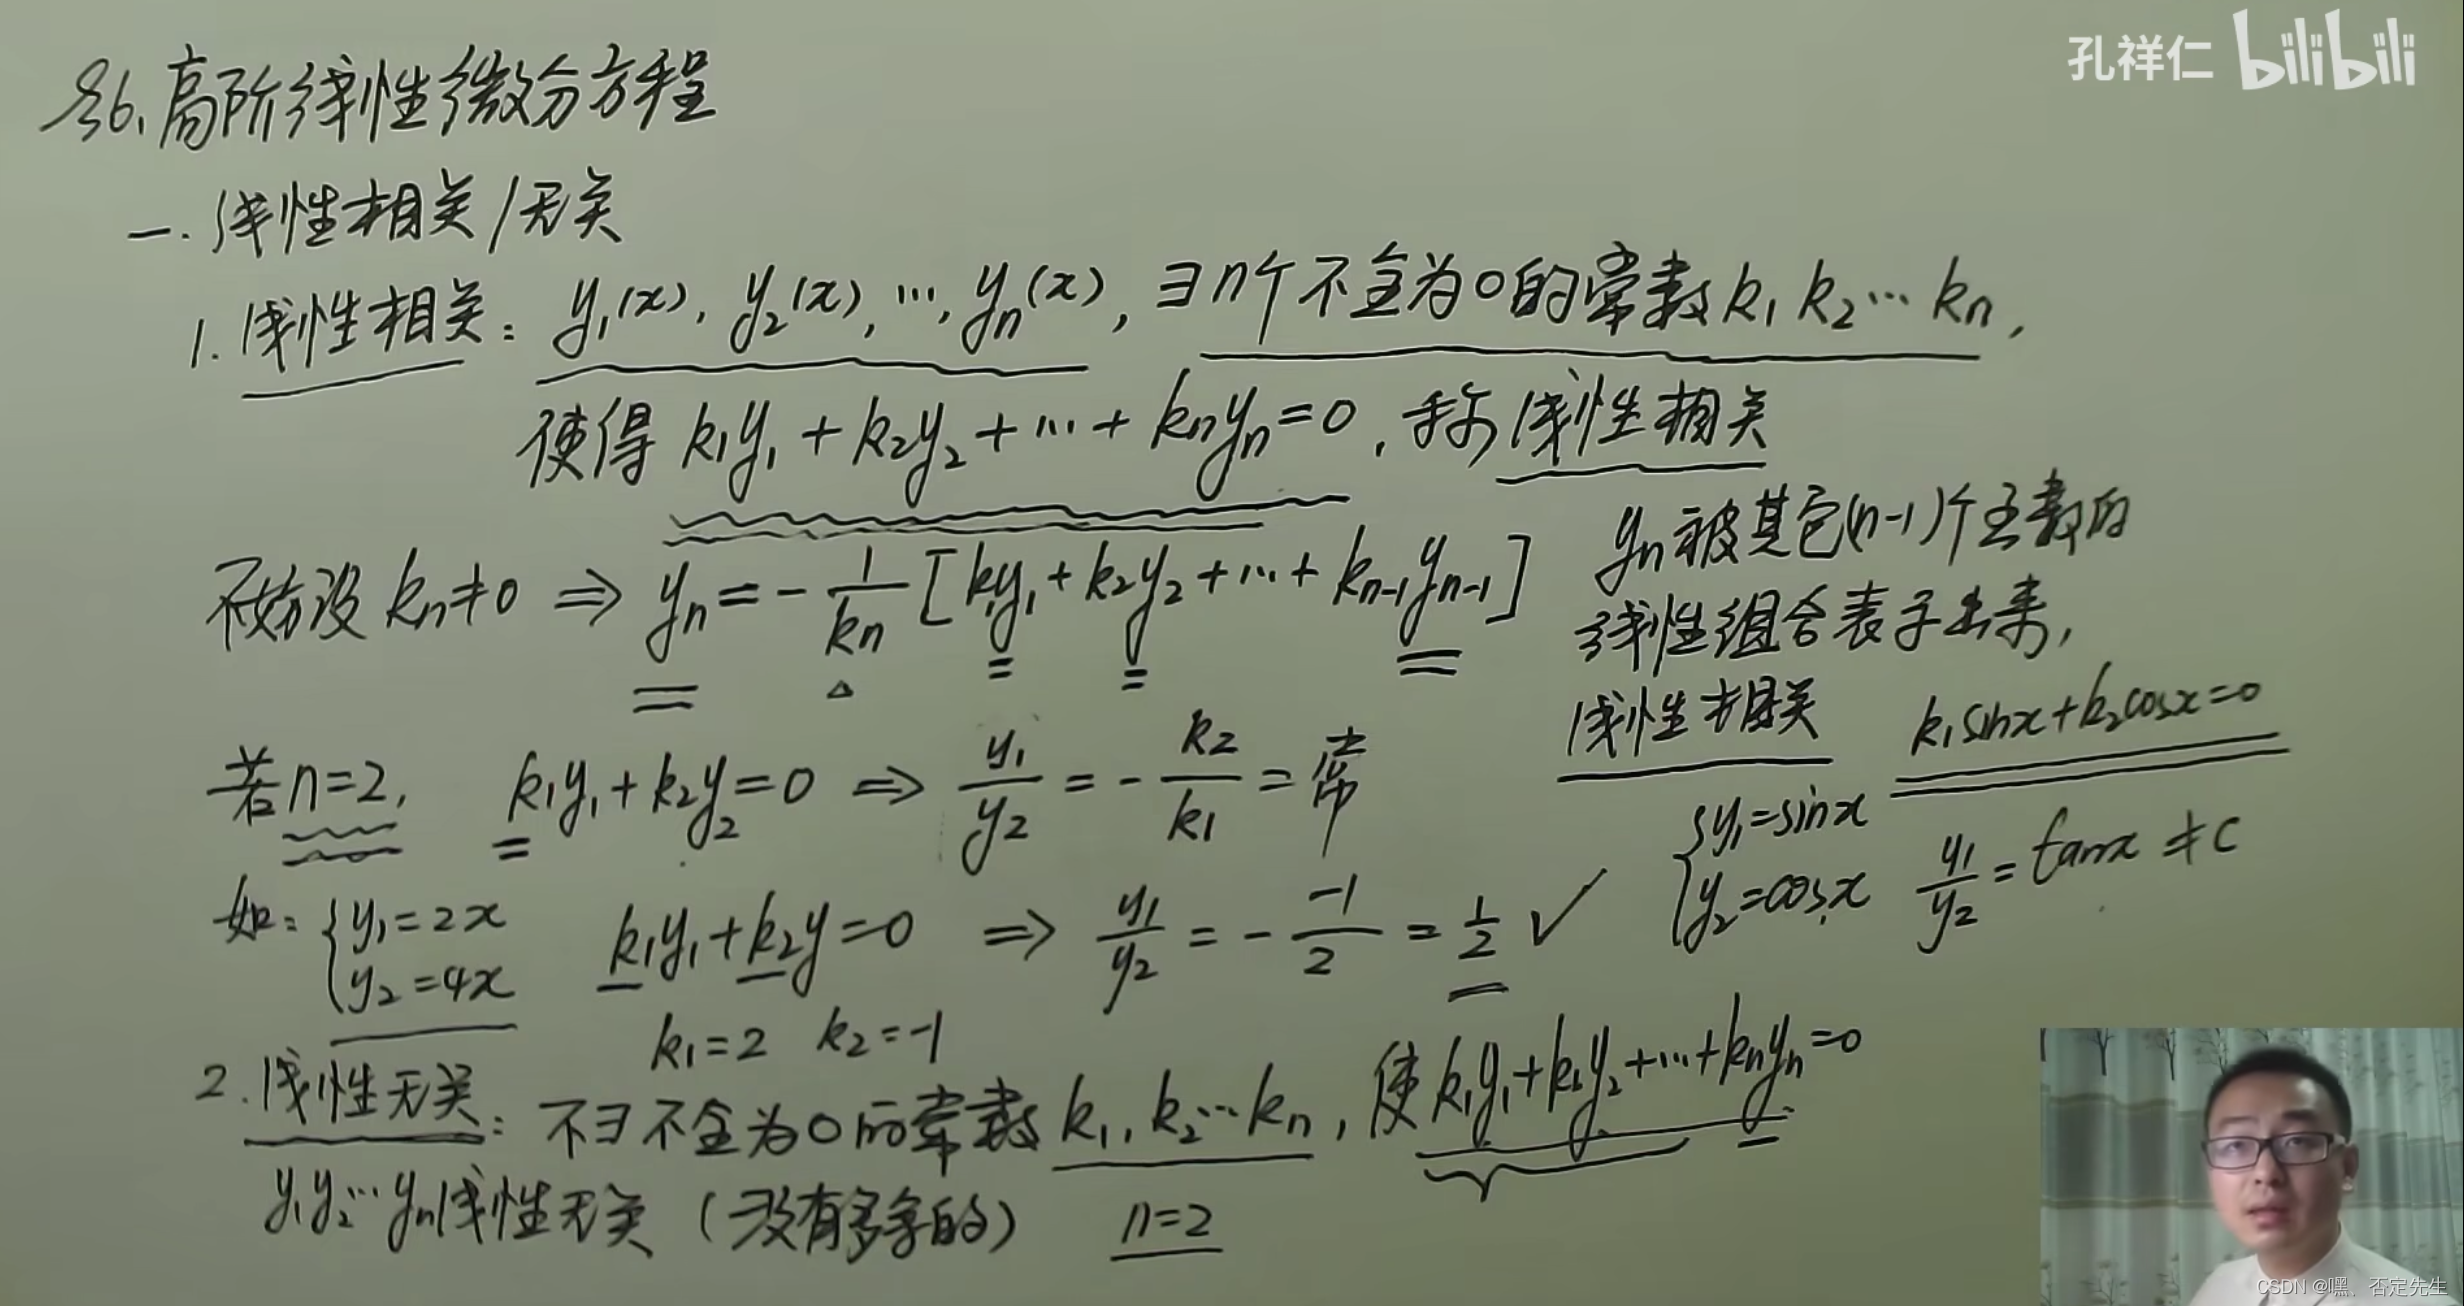 孔祥仁 bilibili
§6.高阶线性微分方程
一.线性相关/无关
1.线性相关：y₁(x), y₂(x), …, yₙ(x), ∃n个不全为0的常数k₁ k₂…kₙ,
使得 k₁y₁+k₂y₂+…+kₙyₙ=0, 称线性相关
不妨设 kₙ≠0 ⇒ yₙ=-1/kₙ[k₁y₁+k₂y₂+…+kₙ₋₁yₙ₋₁]
yₙ被其它(n-1)个函数的
线性组合表示出来,
线性相关
k₁sinx+k₂cosx=0
若n=2, k₁y₁+k₂y₂=0 ⇒ y₁/y₂=-k₂/k₁=常
{y₁=sinx
y₂=cosx
y₁/y₂=tanx≠C
如：{y₁=2x
y₂=4x
k₁y₁+k₂y=0 ⇒ y₁/y₂=--1/2=1/2 ✓
k₁=2 k₂=-1
2.线性无关：不∃不全为0的常数k₁, k₂…kₙ, 使k₁y₁+k₂y₂+…+kₙyₙ=0
y₁y₂…yₙ线性无关（没有多余的） n=2
CSDN @嘿、否定先生